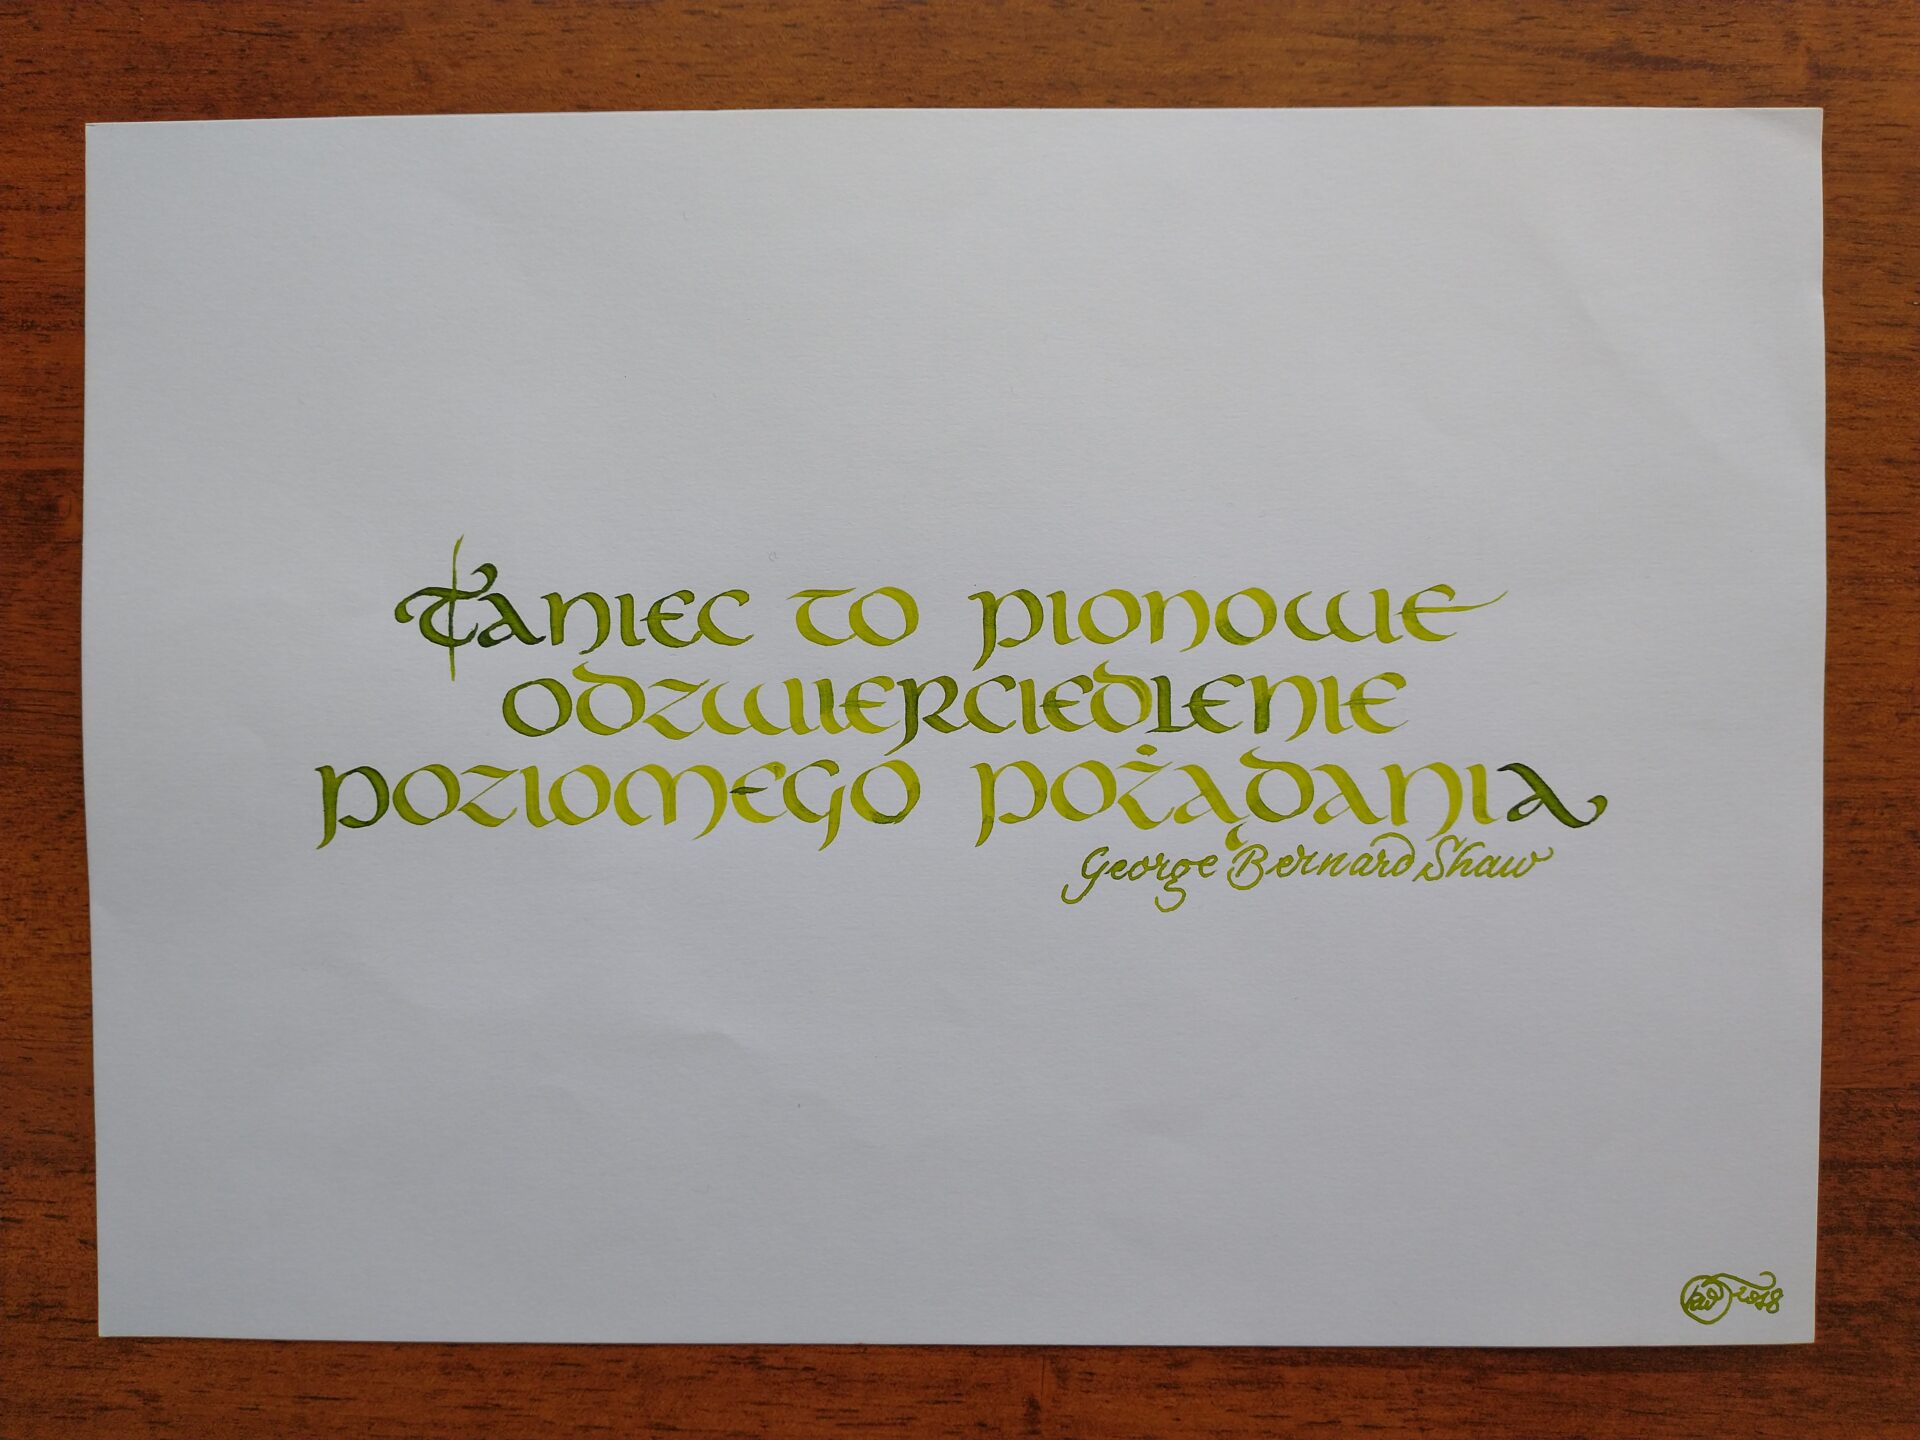 Taniec to pionowe
odzwierciedlenie
poziomego pożądania
George Bernard Shaw
2018